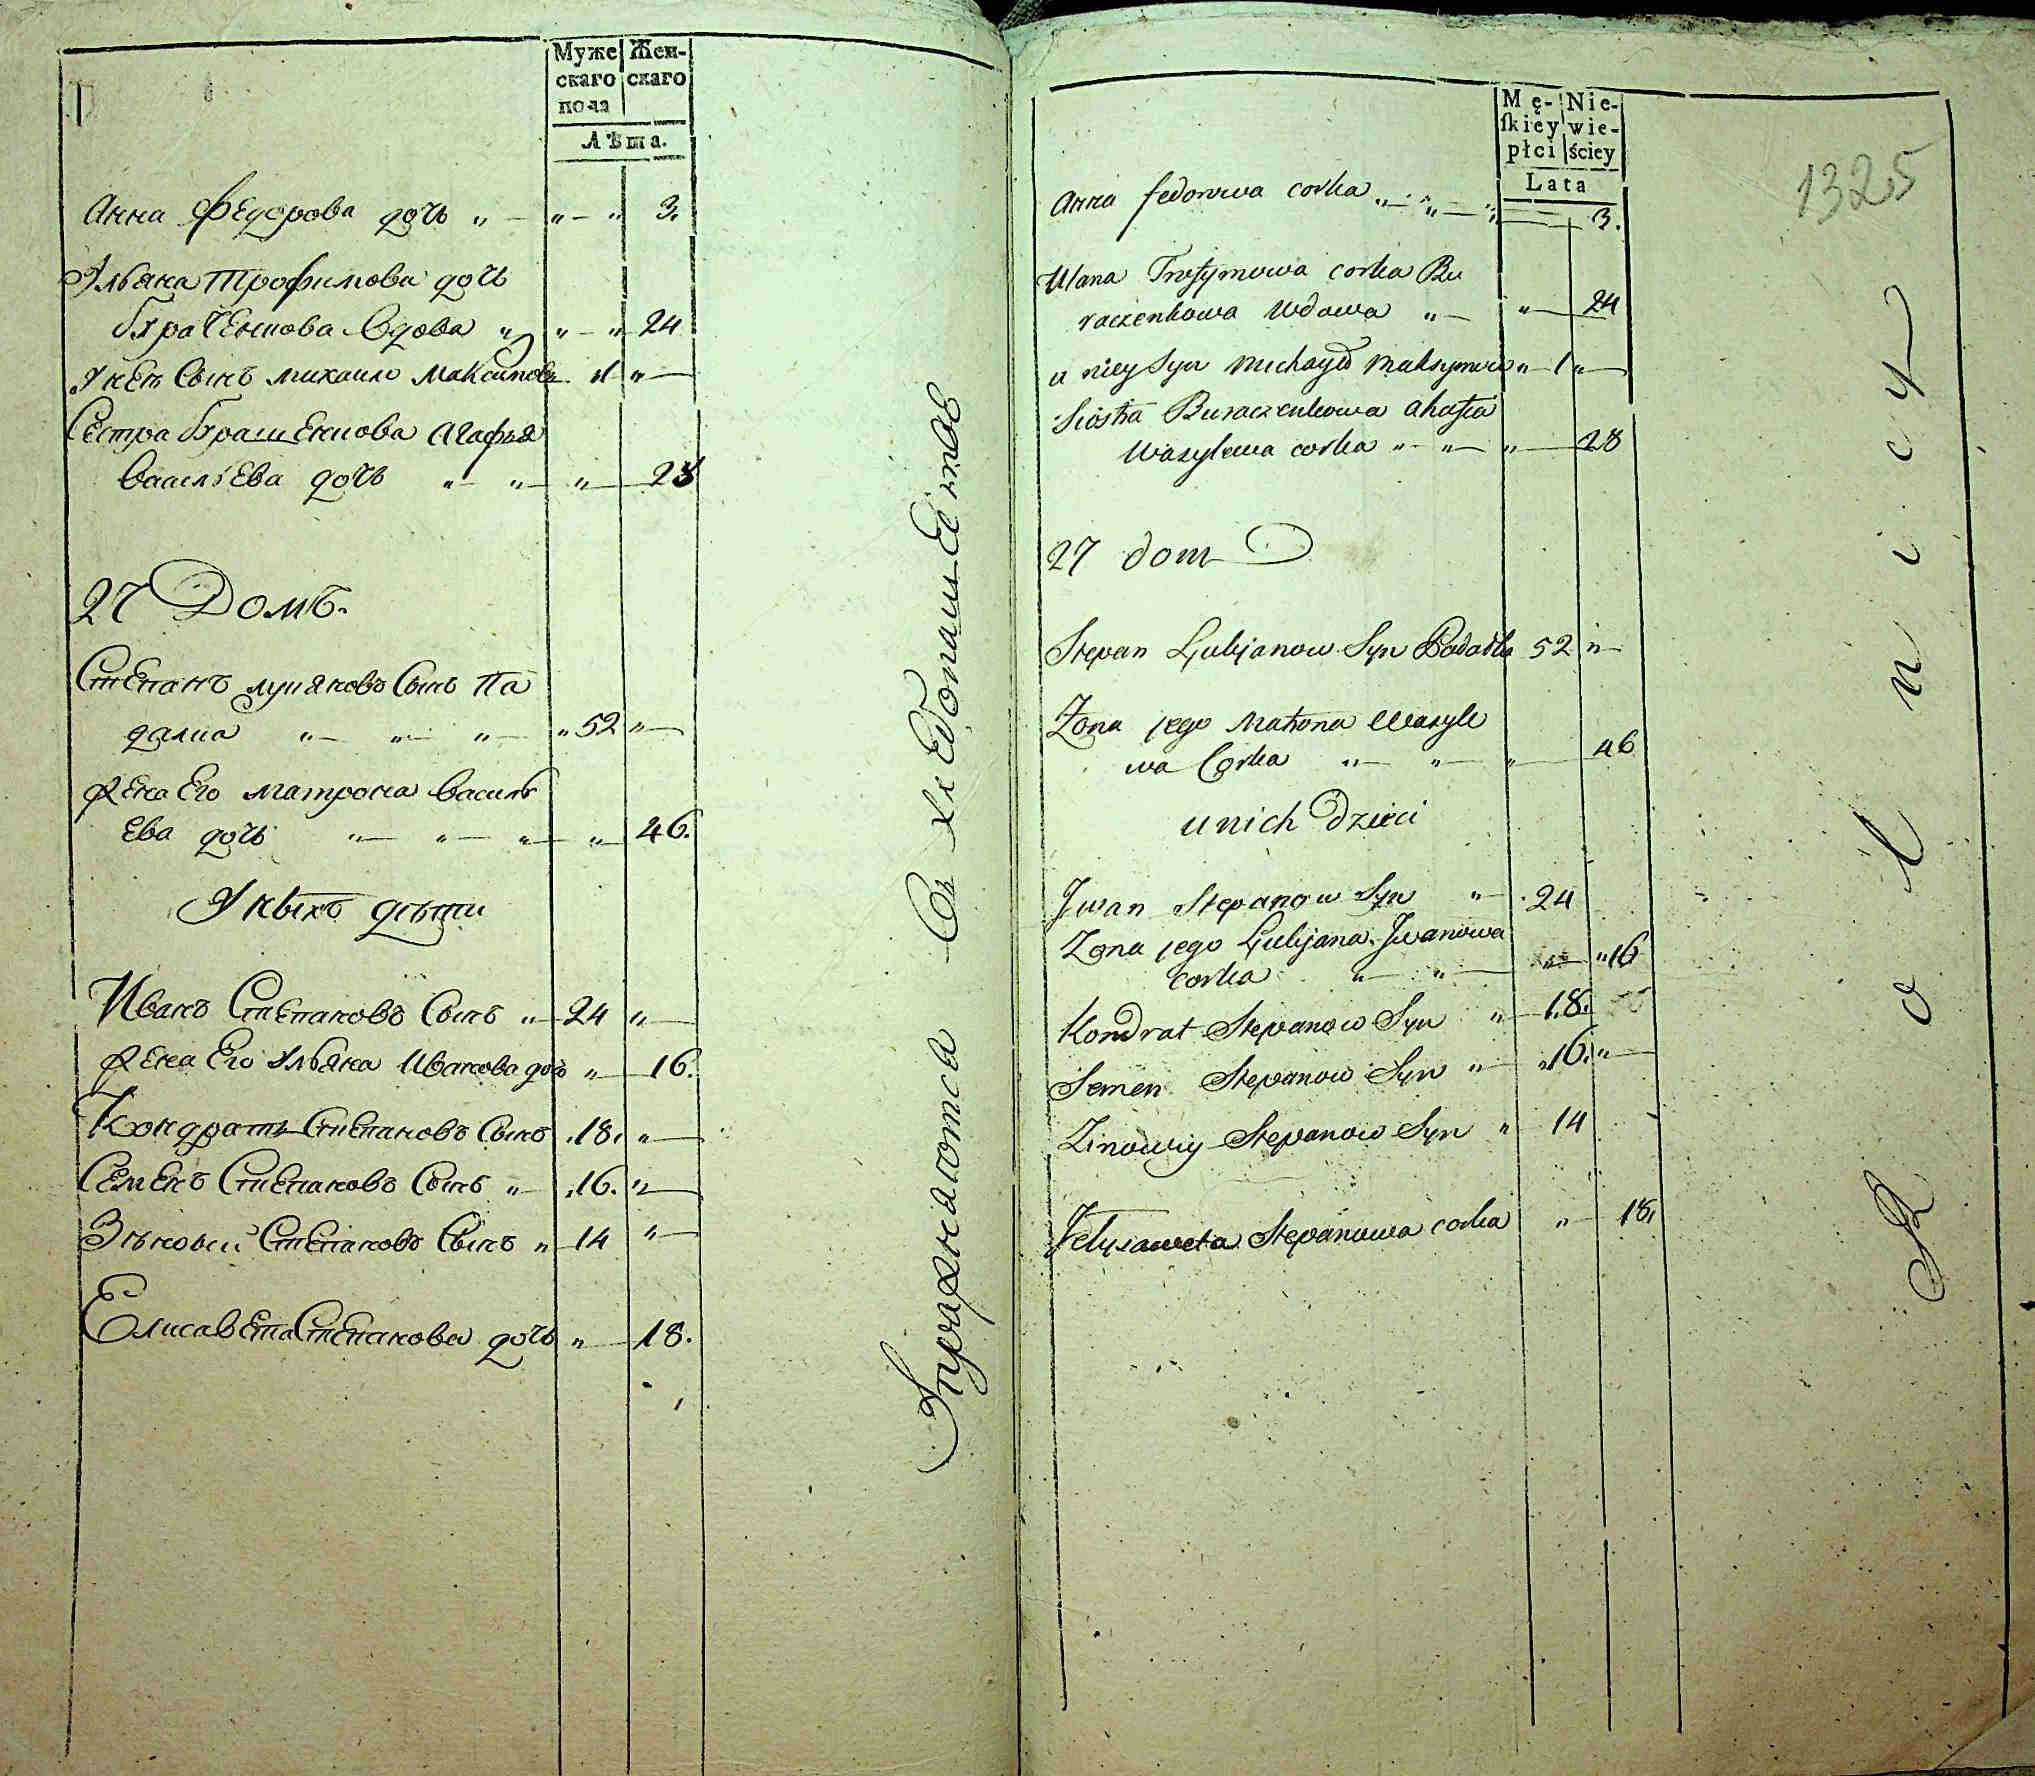 Муже
скаго
пола
Жен-
скаго
Лѣта.
Анна Федорова дочь „ — „ — „ 3.
Ульяна Трофимова дочь
Бураченкова вдова „ „ — „ 24
У неи сынъ михаило Максимовъ 1 „ —
Сестра Бурашенкова Агафья
Васильева дочь „ — „ — „ — 28
27 Домъ.
Степанъ луляновъ сынъ Па
далка „ — „ — „ — „ 52 „ —
Жена Его матрона Василь
Ева дочь „ — „ — „ — „ — 46.
У ныхъ дѣти
Иванъ Степановъ сынъ „ — 24 „ —
Жена Его Ульяна Иванова дочь „ — 16.
Кондратъ Степановъ сынъ .18. „ —
Семенъ Степановъ сынъ „ — .16. „ —
Зѣновий Степановъ сынъ „ — 14 „ —
Елисавета Степанова дочь „ — 18.
Упражняются Въ хлебопашествѣ
Mę-
skiey
płci
Nie-
wie-
ściey
Lata
1325
Anna fedorowa corka „ — „ — „ 3.
Ulana Trofymowa corka Bu
raczenkowa Wdowa „ — „ — 24
u niey Syn Michayło Maksymow „ — 1 „ —
Siostra Buraczenkowa Ahafia
Wasylewa corka „ — „ — „ — 28
27 dom
Stepan Gulijanow Syn Padałka 52 „ —
Zona jego Matrona Wasyle
wa Corka „ — „ — „ — 46
u nich Dzieci
Jwan Stepanow Syn „ — . 24
Zona jego Gulijana Jwanowa
corka „ — „ — „ — „ 16
Kondrat Stepanow Syn „ — 18.
Semen Stepanow Syn „ — „ 16. „ —
Zinowiy Stepanow Syn „ 14
Jelysaweta Stepanowa corka „ — 18.
Rolnicy